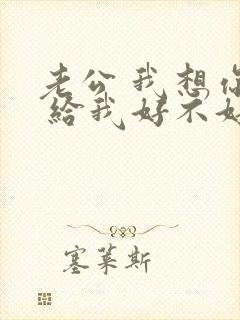 老公我想你
给我好不好
塞莱斯